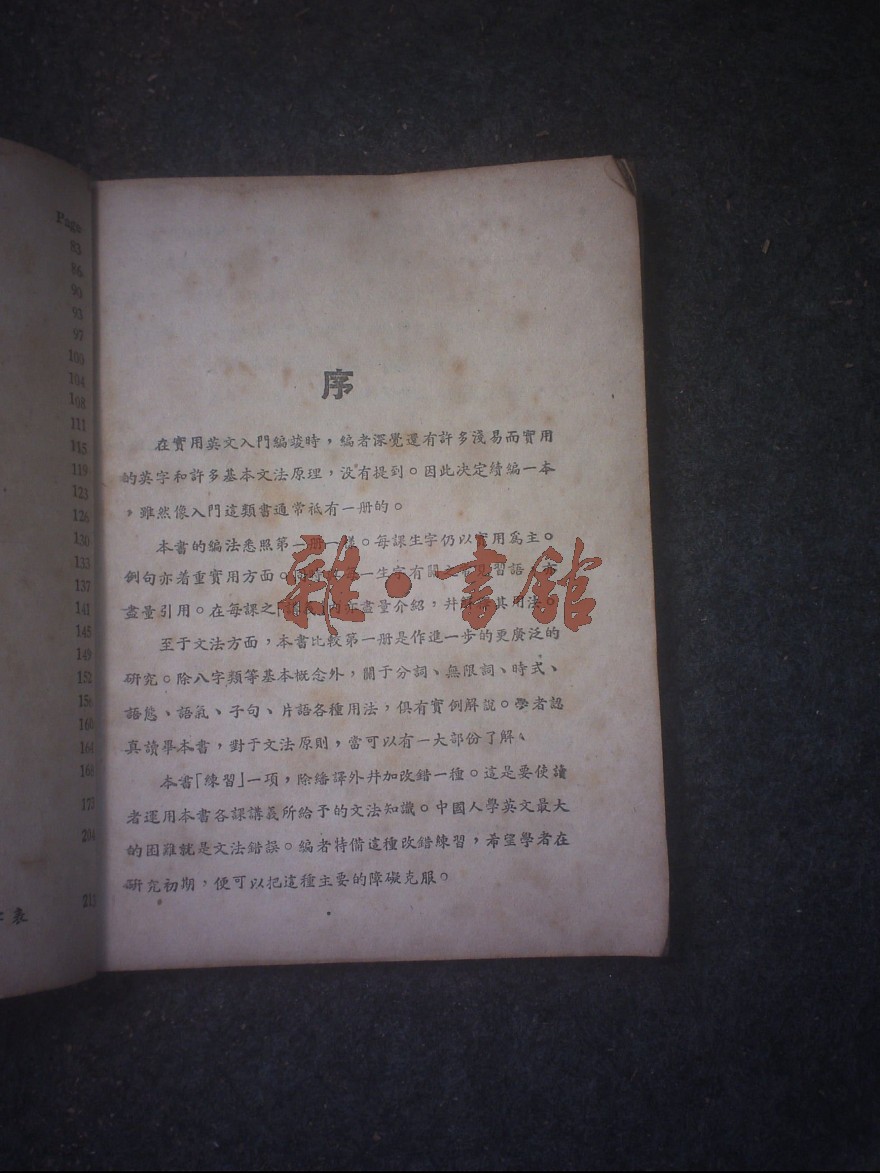 Page
83
86
90
93
97
100
104
108
111
115
119
123
126
130
133
137
141
145
149
152
156
160
164
166
173
204
213
表
序
在實用英文入門編竣時，編者深覺還有許多淺易而實用
的英字和許多基本文法原理，没有提到。因此决定續編一本
，雖然像入門這類書通常祇有一册的。
本書的編法悉照第一册一樣。每課生字仍以實用爲主。
例句亦着重實用方面。一生字有關習語，
盡量引用。在每課之「講義」内亦盡量介紹，并解釋其用法。
至于文法方面，本書比較第一册是作進一步的更廣泛的
研究。除八字類等基本概念外，關于分詞、無限詞、時式、
語態、語氣、子句、片語各種用法，俱有實例解說。學者認
真讀畢本書，對于文法原則，當可以有一大部份了解。
本書「練習」一項，除繙譯外并加改錯一種。這是要使讀
者運用本書各課講義所給予的文法知識。中國人學英文最大
的困難就是文法錯誤。編者特備這種改錯練習，希望學者在
研究初期，便可以把這種主要的障礙克服。
雜·書館